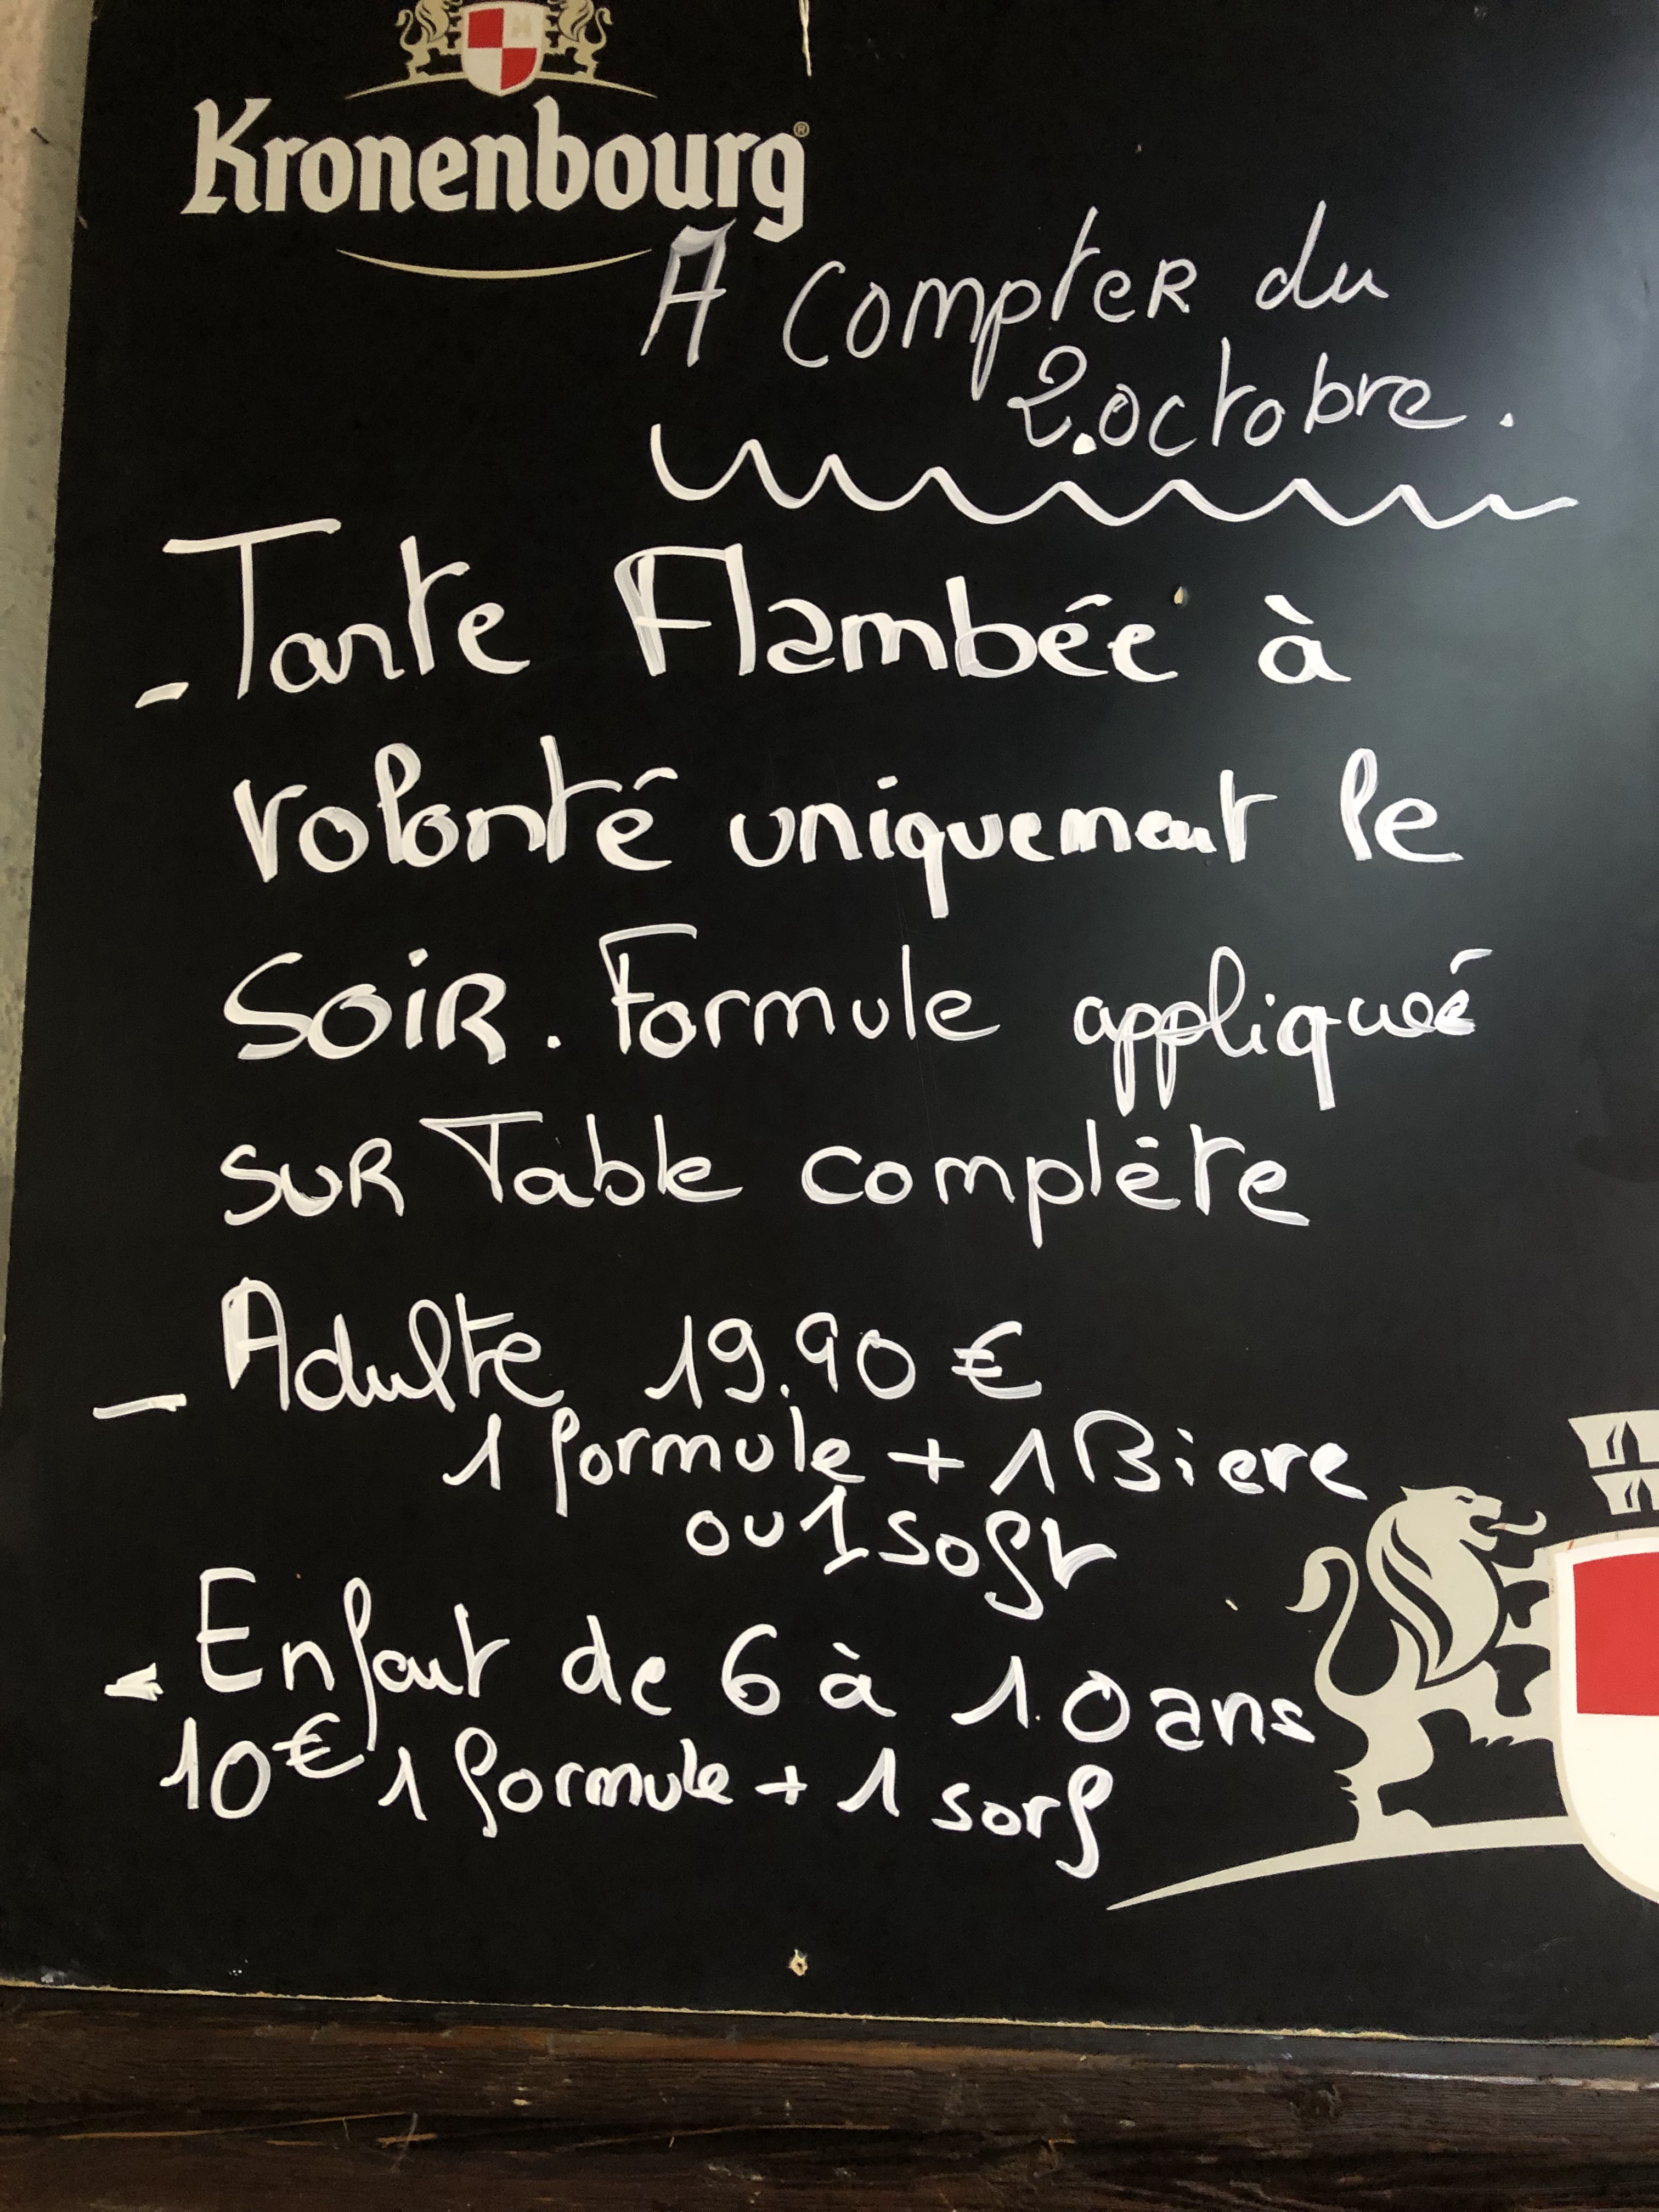 Kronenbourg®
A compter du
2.octobre.
- Tarte Flambée à
volonté uniquement le
SOIR. Formule appliqueé
SUR Table complète
- Adulte 19.90 €
1 formule + 1 Biere
ou 1 soft
- Enfant de 6 à 10 ans
10€ 1 formule + 1 sorf